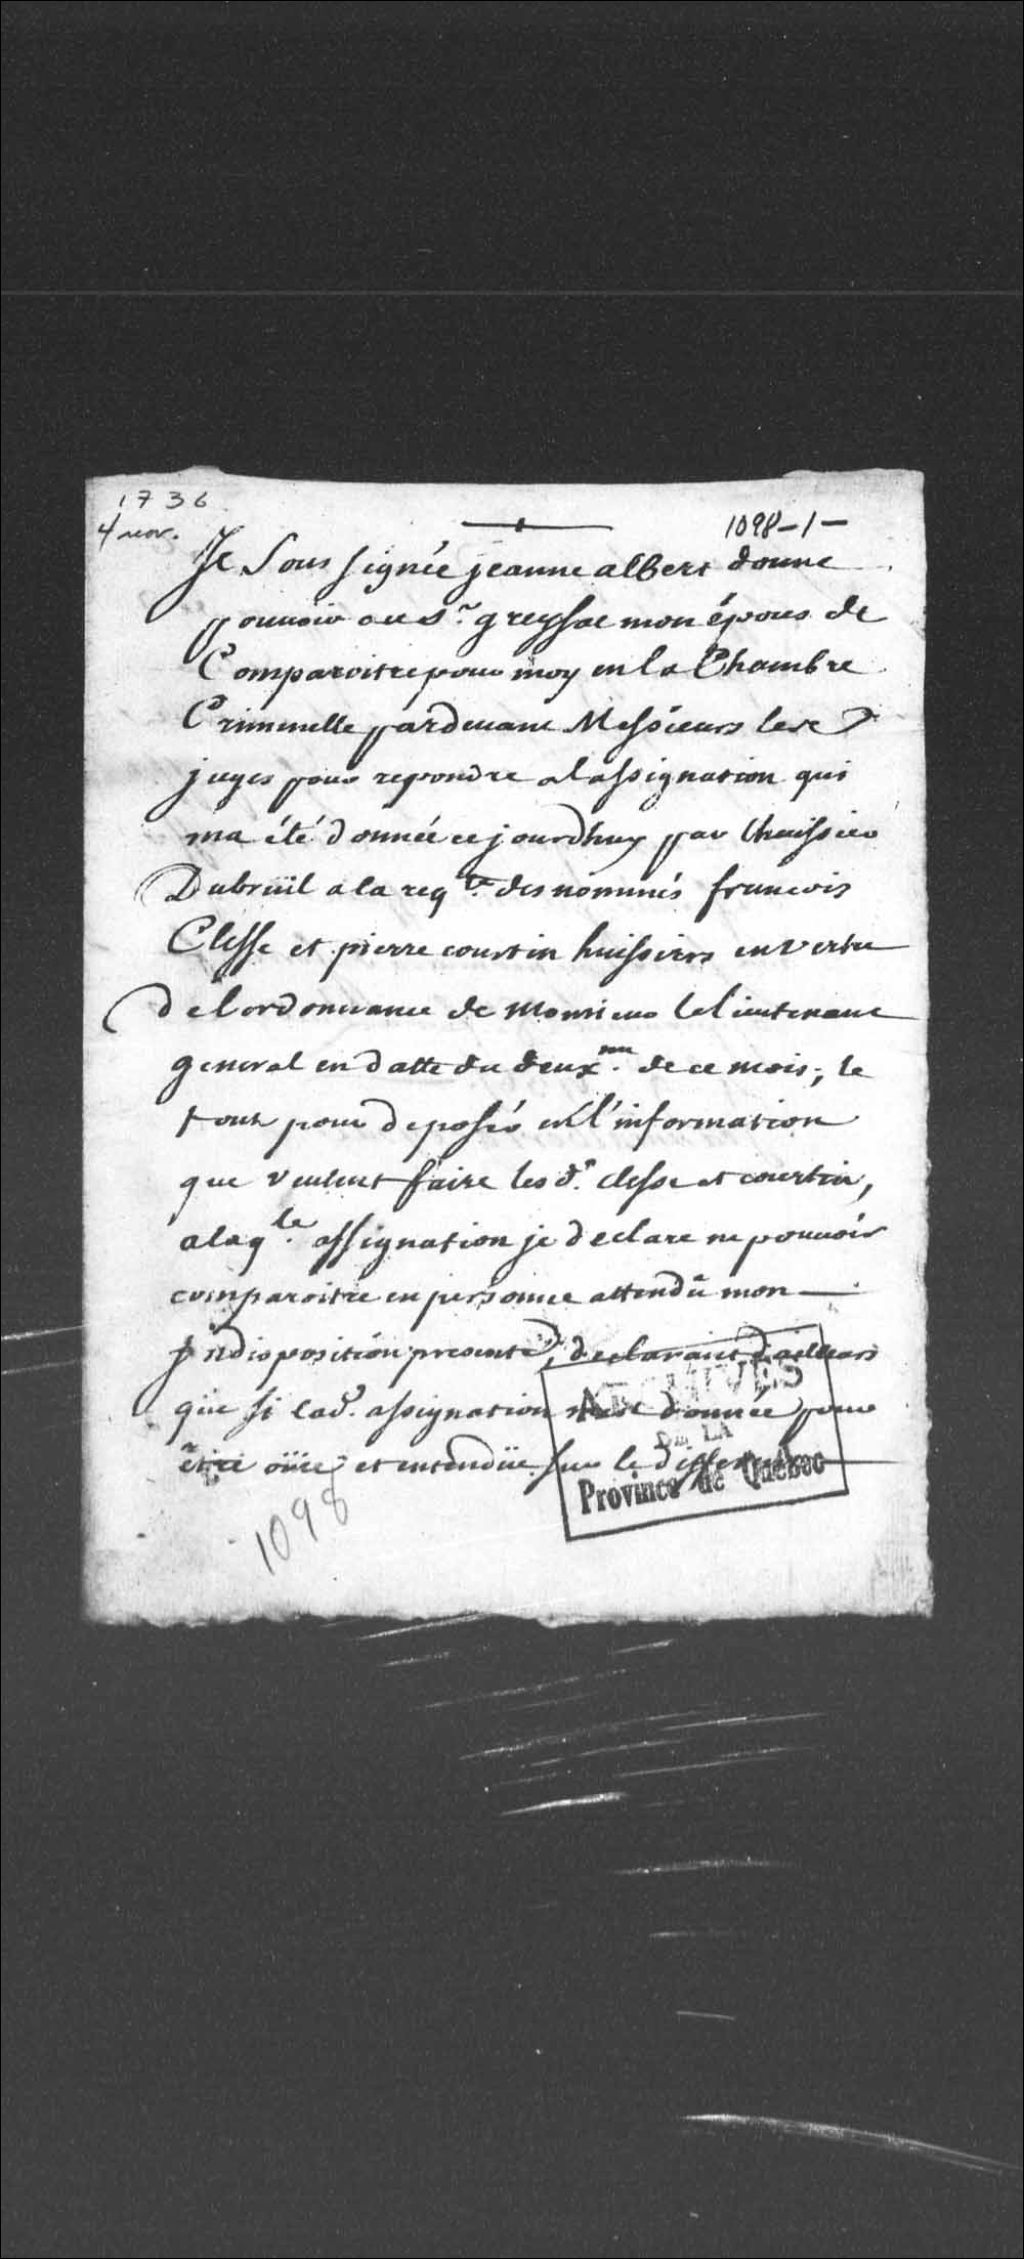 1736
4 nov.
1098-1-
Je Soussignée jeanne albert donne
pouuoir au Sr. greysac mon époux de
Comparoitre pour moy en la Chambre
Criminelle pardeuant Messieurs les
juges pour repondre a lassignation qui
ma été donnée cejourdhuy par lhuissier
Dubruïl a la reqte. des nommés francois
Clesse et pierre courtin huissiers en vertu
de lordonnance de Monsieur le lieutenant
general en datte du deuxme. de ce mois; le
tout pour deposer en l'information
que veulent faire les d. clesse et courtin,
a laqle. assignation je declare ne pouuoir
comparoitre en personne attendû mon
jndisposition presente, declarant d'ailleurs
que si lad. assignation mest donnée pour
être oüie et entendüe sur le
ARCHIVES
DE LA
Province de Québec
1098